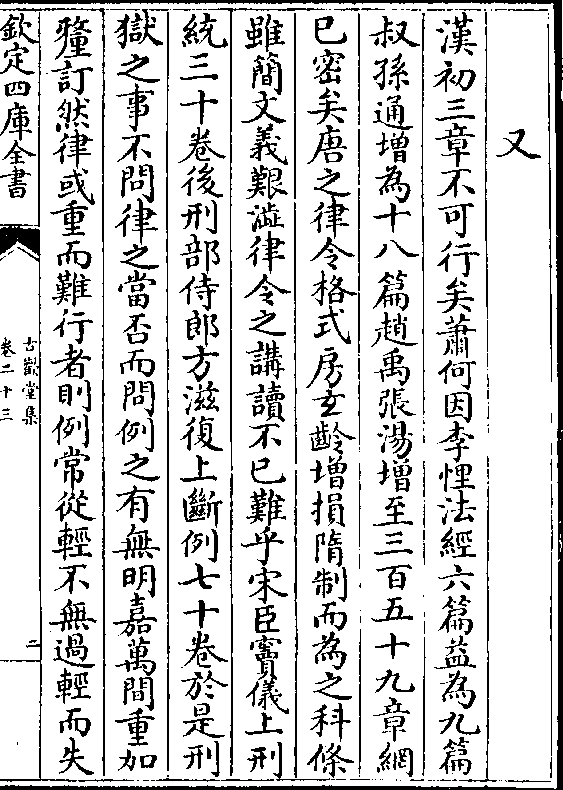 又
漢初三章不可行矣蕭何因李悝法經六篇益為九篇
叔孫通增為十八篇趙禹張湯增至三百五十九章網
已密矣唐之律令格式房玄齡增損隋制而為之科條
雖簡文義艱澁律令之講讀不已難乎宋臣竇儀上刑
統三十卷後刑部侍郎方滋復上斷例七十卷於是刑
獄之事不問律之當否而問例之有無明嘉萬間重加
釐訂然律或重而難行者則例常從輕不無過輕而失
欽定四庫全書
古歡堂集
卷二十三
二